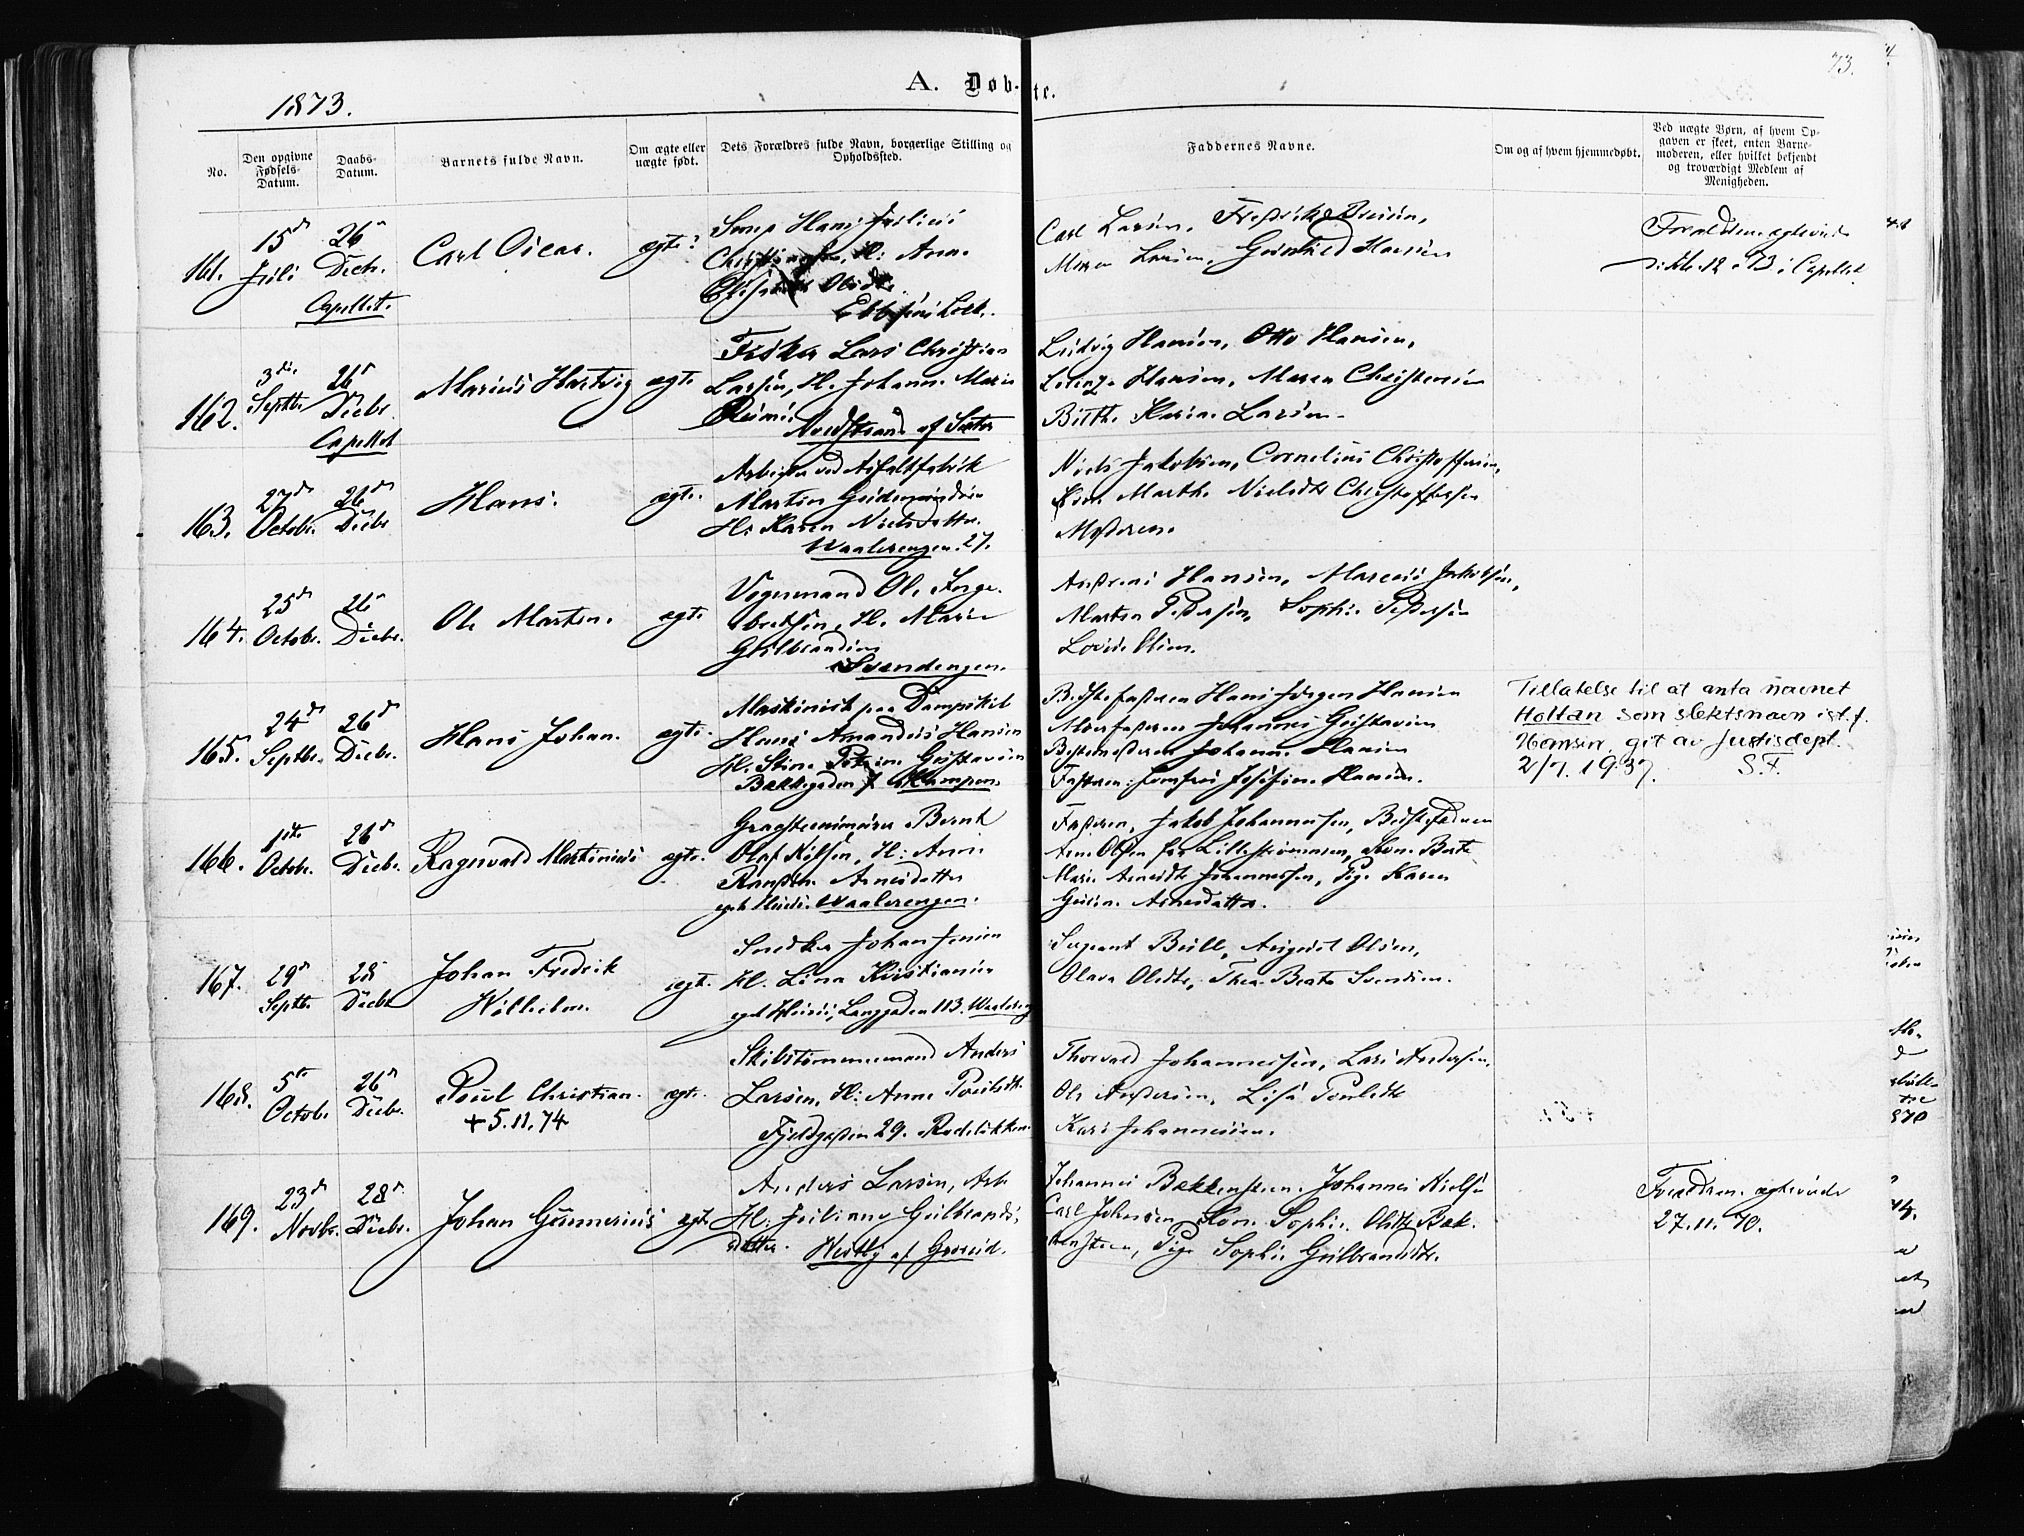 73.
1873.
A. Døb-te.
No.
Den opgivne Fødsels-Datum.
Daabs-Datum.
Barnets fulde Navn.
Om ægte eller uægte født.
Dets Forældres fulde Navn, borgerlige Stilling og Opholdssted.
Faddernes Navne.
Om og af hvem hjemmedøbt.
Ved uægte Børn, af hvem Opgaven er skeet, enten Barnemoderen, eller hvilket bekjendt og troværdigt Medlem af Menigheden.
161.
15d Juli
26d Decbr.
Capellet.
Carl Oscar.
ægte
Hans Julius
H: Anna
Carl Larsen, Fredrik
Maren Larsen, Gunhild Hansen
Forældrene ægteviede
i Capellet
162.
3die Septbr
26d Decbr.
Capellet
Marius Hartvig
ægte
Fisker Lars Christian
Larsen, H. Johanne Marie
Nordstrand af Sæter
Ludvig Hansen, Otto Hansen,
Lorenze Hansen, Maren Christensen
Birthe Karine Larsen.
163.
27d Octobr.
26d Decbr
Hans.
ægte.
Arbeider ved Asfaltfabrik
Martin Gudmundsen
H: Karen Nielsdatter.
Waalerengen. 27.
Niels Jakobsen, Cornelius Christoffersen,
Marthe Nielsdtr Christoffersen
Moderen.
164.
25d Octobr.
26d Decbr.
Ole Martin.
ægte
Vognmand Ole Inge-
bretsen, H. Marie
Gulbrandsen
Svendengen.
Andreas Hansen, Marcus Jakobsen,
Martin Pedersen, Sophie Pedersen
Lovise Olsen.
165.
24d Septbr.
26d Decbr.
Hans Johan.
ægte.
Maskinist paa Dampskib
Hans Amandus Hansen
H. Stine Gustavsen
Bakkegaden 7 Kampen.
Bedstefaderen Hans Jørgen Hansen
Morfaderen Johannes Gustavsen
Bestemoderen Johanne Hansen
Faderen. Jomfru Josefine Hansen.
Tillatelse til at anta navnet
Holtan som slektsnavn ist. f.
Hansen, git av Justisdept.
2/7. 1937. S.F.
166.
1ste Octobr.
26d Decbr.
Ragnvald Martinius
ægte.
Bernt
Olaf Nilsen, H: Anne
Arnesdatter
eget Huus. Waalerengen.
Faderen, Jakob Johannessen, Bedstefaderen
Arne Olsen fra Lillestrømmen, Kone Berte
Marie Arnesdtr Johannessen, Pige Karen
Arnesdatter.
167.
29d Septbr.
28 Decbr
Johan Fredrik
Wilhelm.
ægte.
Snedker Johan Jensen
H. Lina Kristiansen
eget Huus, Langgaden 113. Waalereng
Sergeant Bull, August Olsen,
Olava Olsdtr, Thea Berta Svendsen.
168.
5te Octobr.
26d Decbr.
Poul Christian.
+5.11.74
ægte.
Skibstømmermand Anders
Larsen, H: Anne Poulsdtr.
Fjeldgaden 29. Rodeløkken.
Thorvald Johannessen, Lars Andersen,
Ole Andersen, Lise Poulsdtr
Kari Johannessen.
169.
23d Novbr.
28d Decbr.
Johan Gunnerius
ægte.
Anders Larsen, Arb
H: Juliane Gulbrands-
datter. Westby af Grorud.
Johannes Bakkensteen. Johannes Nielsen
Carl Johnsen. Kone Sophie Olsdtr Bak-
kensteen, Pige Sophie Gulbrandsdtr.
Forældrene ægteviede
27.11.70.